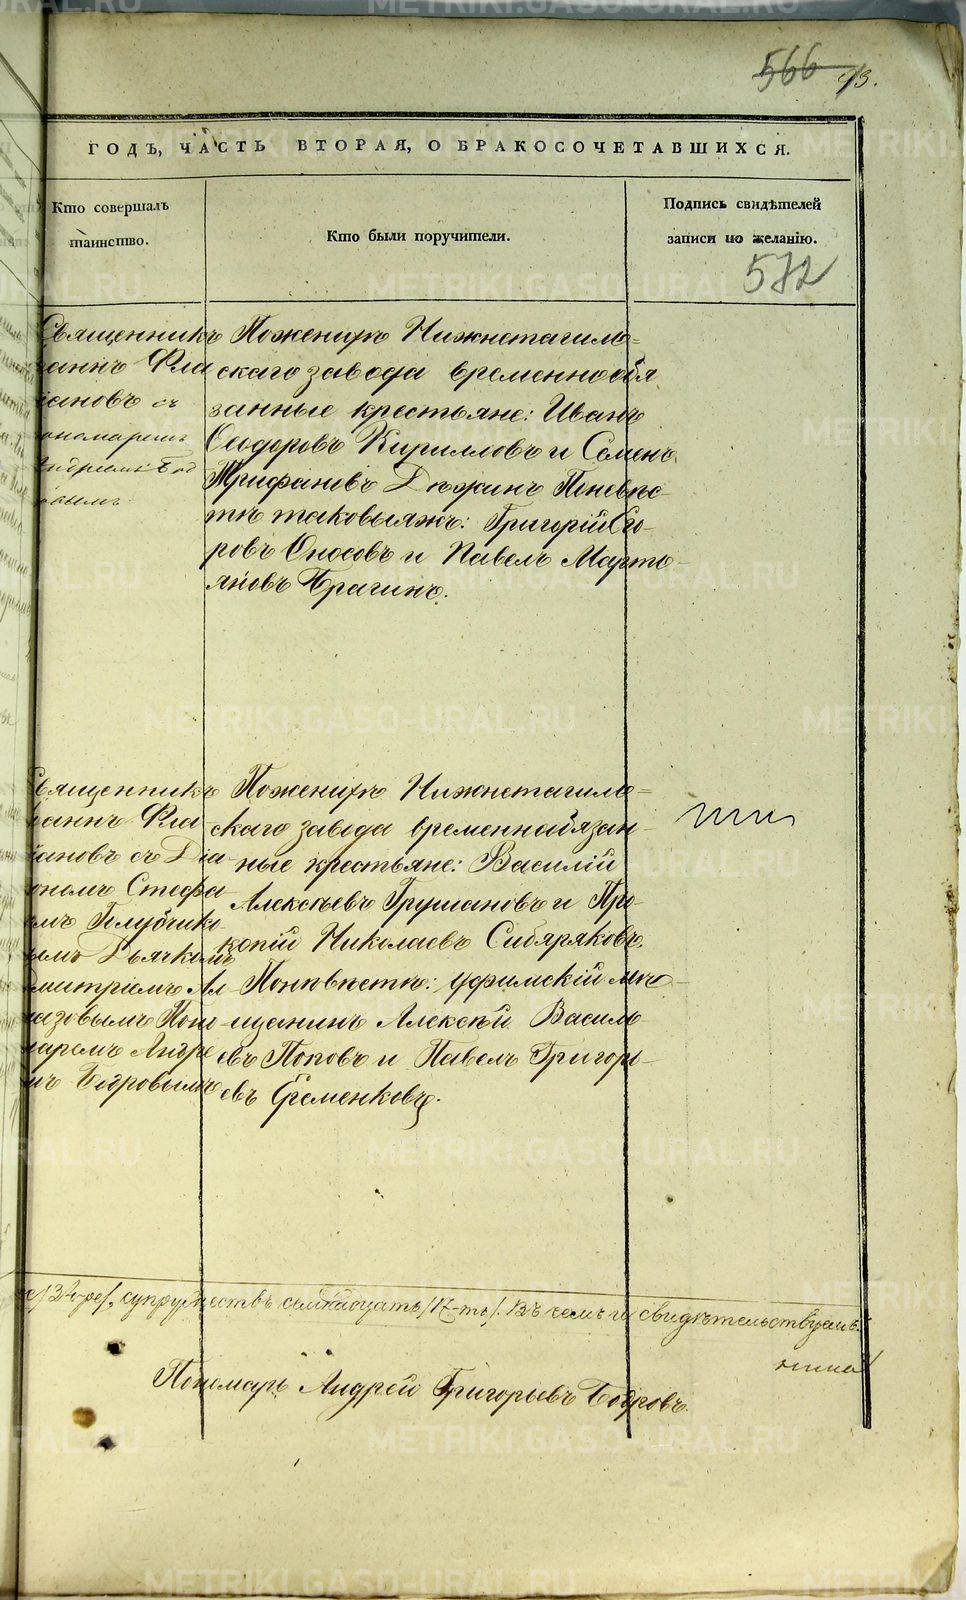 566 93.
ГОДЪ, ЧАСТЬ ВТОРАЯ, О БРАКОСОЧЕТАВШИХСЯ.
Кто совершалъ
таинство.
Кто были поручители.
Подпись свидѣтелей
записи по желанію.
572
Священникъ
Іоаннъ Фла
віановъ съ
пономаремъ
Андреемъ Бод
ровымъ
По женихѣ Нижнетагиль=
скаго завода временнообя
занные крестьяне: Иванъ
Ѳедоровъ Кирилловъ и Семенъ
Трифановъ Дюжинъ По невѣс-
тѣ таковыяжъ: Григорій Его-
ровъ Оносовъ и Павелъ Марть-
яновъ Брагинъ.
Священникъ
Іоаннъ Фла
віановъ съ Діа-
кономъ Стефа
номъ Голубчико
вымъ Дьячкомъ
Димитріемъ Ал
мазовымъ Поно-
маремъ Андре
емъ Бодровымъ
По женихѣ Нижнетагиль=
скаго завода временнообязан-
ные крестьяне: Василій
Алексѣевъ Грушановъ и Про-
копій Николаевъ Сибиряковъ.
По невѣстѣ: Уфимскій мѣ-
щанинъ Алексѣй Василь-
евъ Поповъ и Павелъ Григорь-
евъ Еременковъ.
супружествъ семнадцать /17-ть/. Въ чемъ и свидѣтельствуемъ:
Пономарь Андрей Григорьевъ Бодровъ.
METRIKI.GASO-URAL.RU